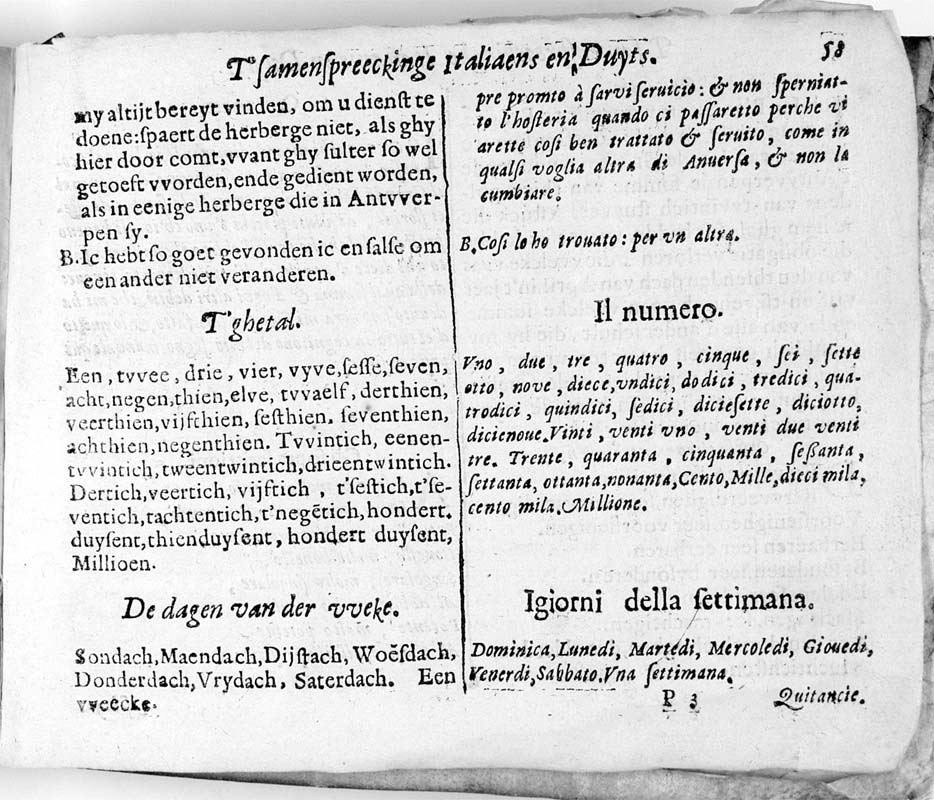 T'ſamenſpreeckinge Italiaens en Duyts.
58
my altijt bereyt vinden, om u dienſt te
doene: ſpaert de herberge niet, als ghy
hier door comt, vvant ghy ſulter ſo wel
getoeft vvorden, ende gedient worden,
als in eenige herberge die in Antvver-
pen ſy.
B. Ic hebt ſo goet gevonden ic en ſalſe om
een ander niet veranderen.
T'ghetal.
Een, tvvee, drie, vier, vyve, ſeſſe, ſeven,
acht, negen, thien, elve, tvvaelf, derthien,
veerthien, vijfthien, ſeſthien, ſeventhien,
achthien, negenthien. Tvvintich, eenen-
tvvintich, tweentwintich, drieentwintich.
Dertich, veertich, vijftich, t'ſeſtich, t'ſe-
ventich, tachtentich, t'negētich, hondert.
duyſent, thienduyſent, hondert duyſent,
Millioen.
De dagen van der vveke.
Sondach, Maendach, Dijſtach, Woēſdach,
Donderdach, Vrydach, Saterdach. Een
vveecke.
pre promto à farvi ſeruicio: & non ſperniat-
to l'hoſteria quando ci paſſaretto perche vi
ſarette coſi ben trattato & ſeruito, come in
qualſi voglia altra di Anuerſa, & non la
cumbiare.
B. Coſi lo ho trouato: per vn altra.
Il numero.
Vno, due, tre, quatro, cinque, ſei, ſette
otto, nove, diece, vndici, dodici, tredici, qua-
trodici, quindici, ſedici, dicieſette, diciotto,
dicienoue. Vinti, venti vno, venti due venti
tre. Trente, quaranta, cinquanta, ſeßanta,
ſettanta, ottanta, nonanta, Cento, Mille, dieci mila,
cento mila. Millione.
Igiorni della ſettimana.
Dominica, Lunedi, Martedi, Mercoledi, Giouedi,
Venerdi, Sabbato. Vna ſettimana.
P 3
Quitancie.